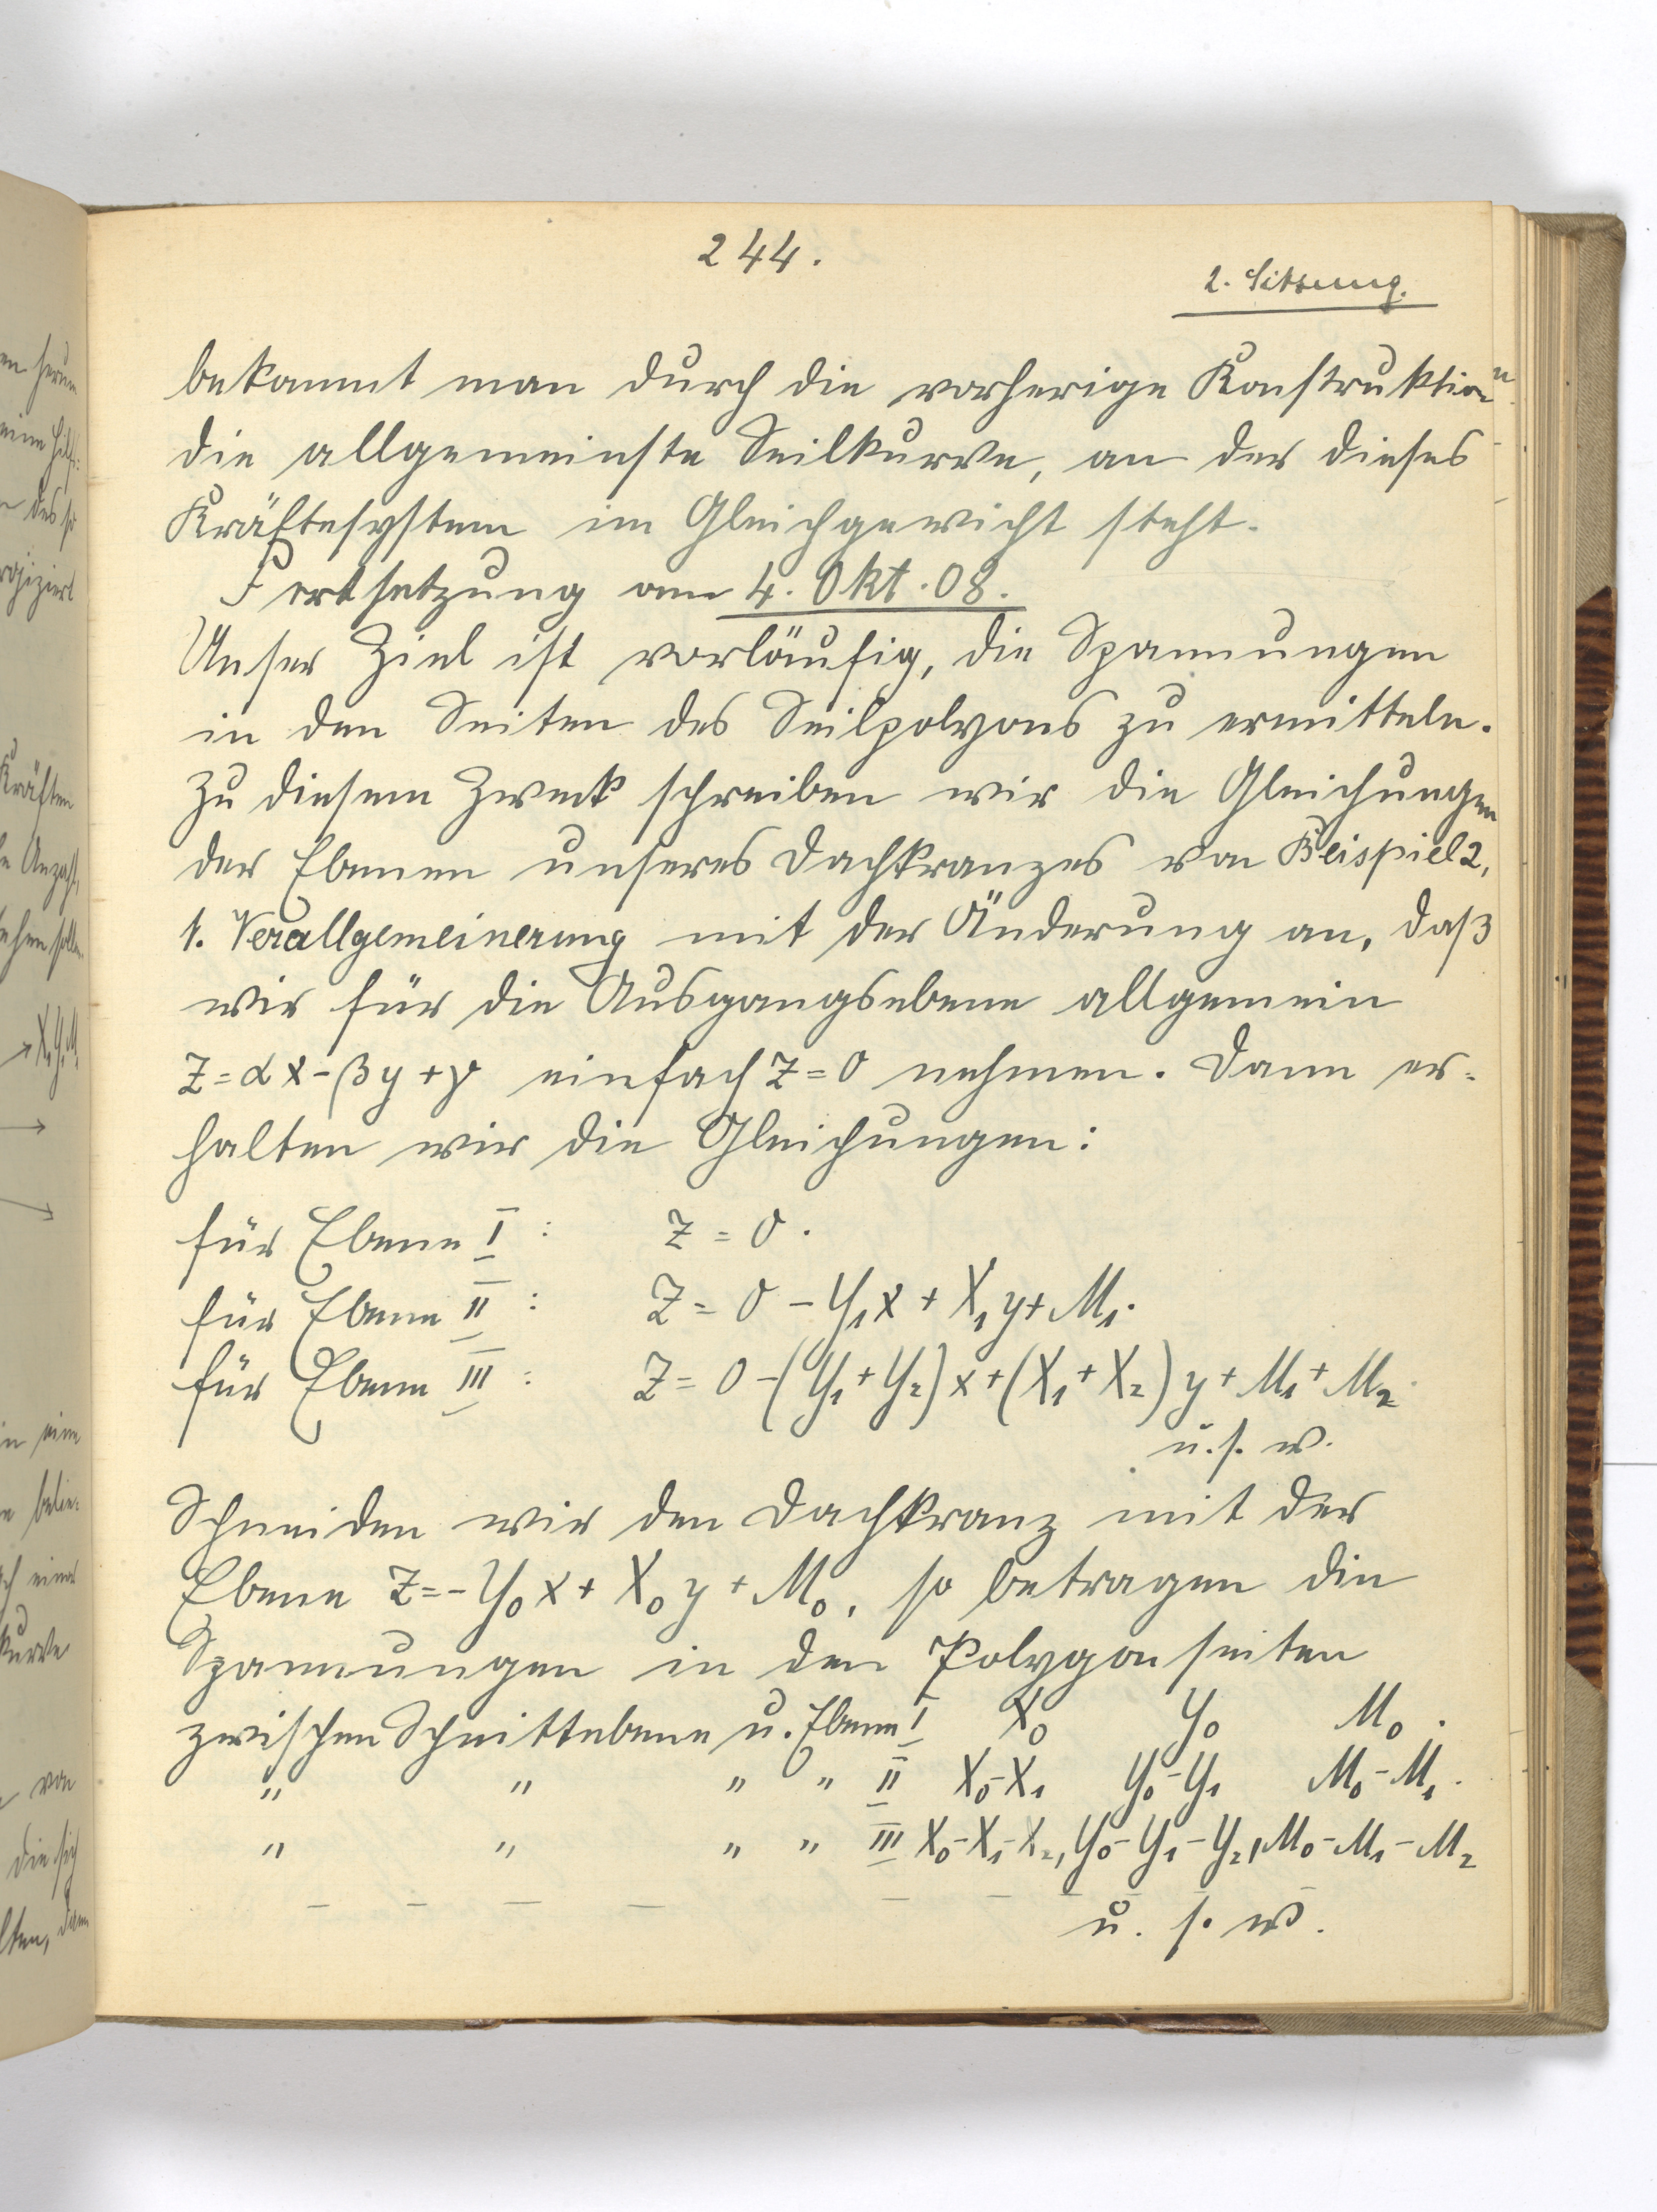 244.
2. Sitzung.
bekommt man durch die vorherige Konstruktion
die allgemeinste Seilkurve, an der dieses
Kräftesystem im Gleichgewicht steht.
Fortsetzung am 4. Okt. 08.
Unser Ziel ist vorläufig, die Spannungen
in den Seiten des Seilpolygons zu ermitteln.
Zu diesem Zweck schreiben wir die Gleichungen
der Ebenen unseres Dachkranzes von Beispiel 2,
1. Verallgemeinerung mit der Änderung an, daß
wir für die Ausgangsebene allgemein
Z = αx - βy + γ einfach Z = 0 nehmen. Dann er-
halten wir die Gleichungen:
für Ebene I : Z = 0.
für Ebene II : Z = 0 - Y₁x + X₁y + M₁.
für Ebene III : Z = 0 - (Y₁ + Y₂)x + (X₁ + X₂)y + M₁ + M₂.
u. s. w.
Schneiden wir den Dachkranz mit der
Ebene Z = - Y₀x + X₀y + M₀, so betragen die
Spannungen in den Polygonseiten
zwischen Schnittebene u. Ebene I X₀ Y₀ M₀.
" " " " II X₀-X₁ Y₀-Y₁ M₀-M₁.
" " " " III X₀-X₁-X₂, Y₀-Y₁-Y₂, M₀-M₁-M₂
u. s. w.